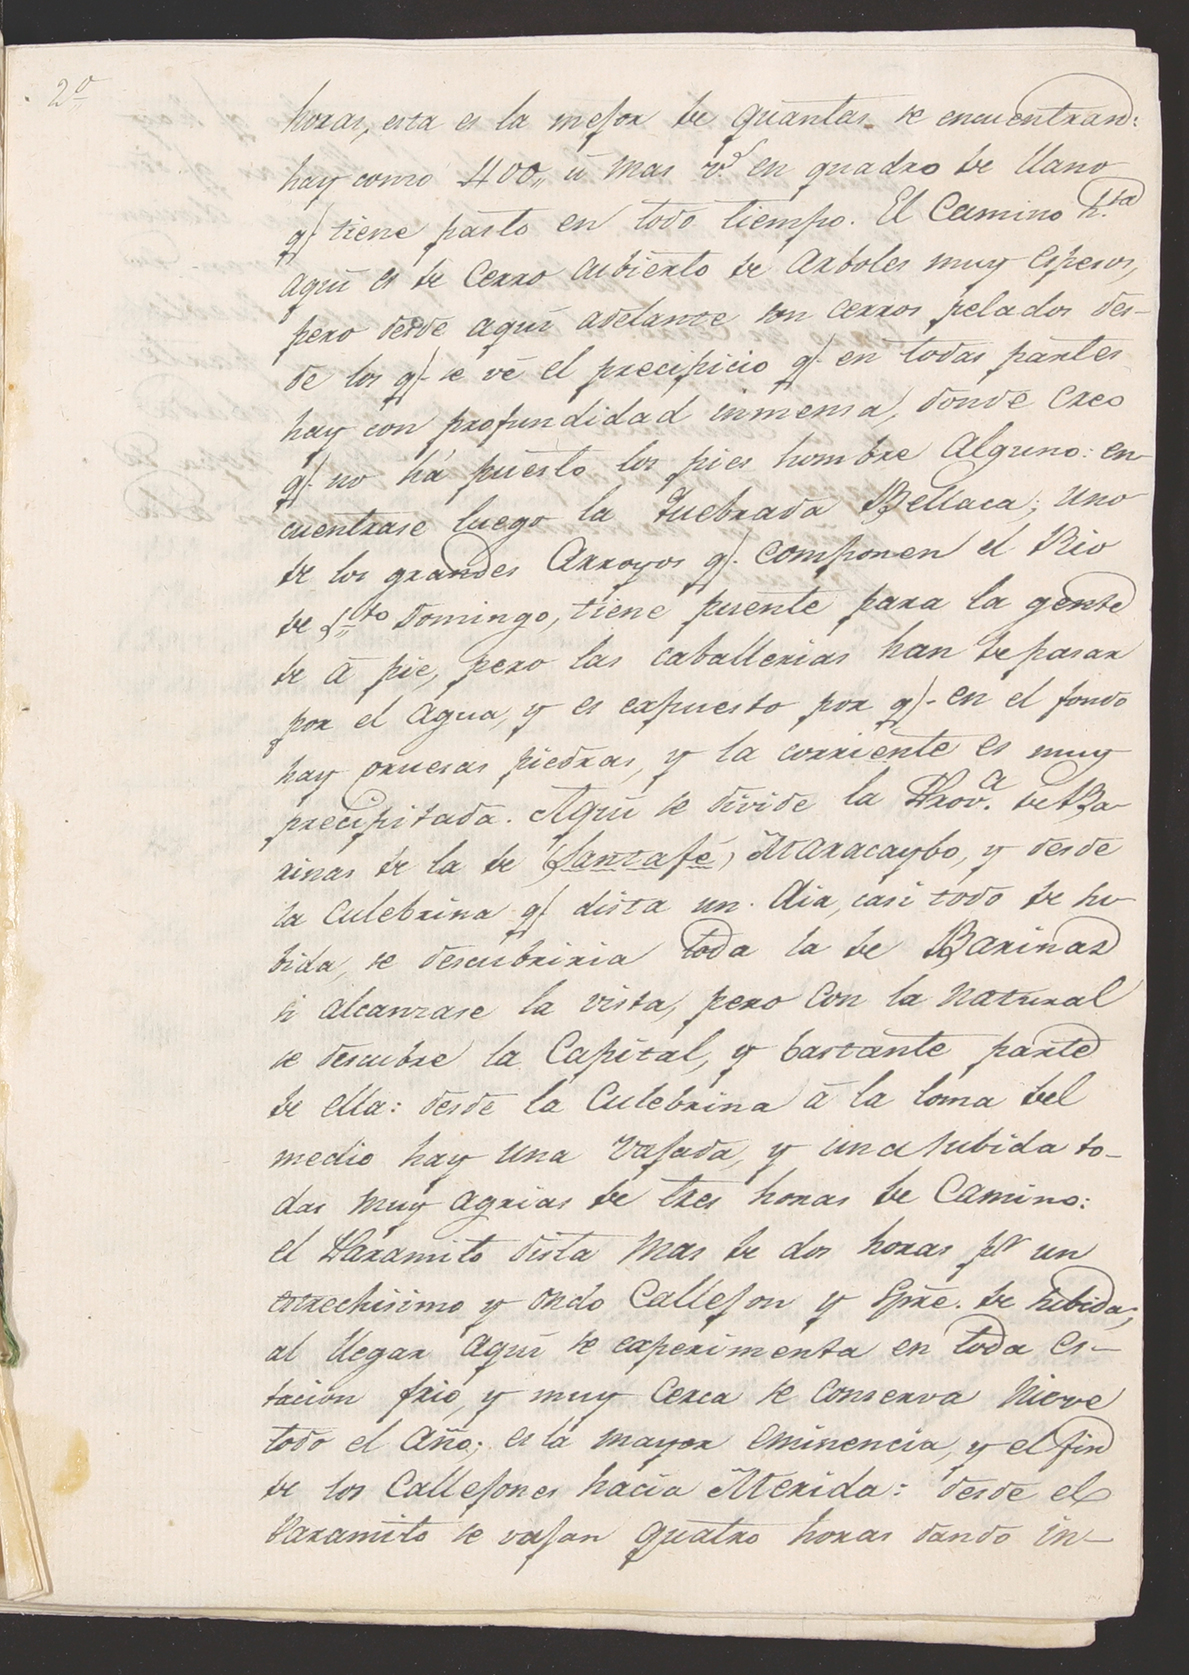 2º
horas, esta es la mejor de quantas se encuentran:
hay como 400,, ù mas v.s en quadro de llano
q.e tiene pasto en todo tiempo. El Camino h.ta
aqui es de Cerro cubierto de Arboles muy espesos,
pero desde aqui adelante son cerros pelados des-
de los q.e se vé el precipicio q.e en todas partes
hay con profundidad inmensa, donde Creo
q.e no há puesto los pies hombre Alguno: en-
cuentrase luego la Quebrada Bellaca; uno
de los grandes Arroyos q.e componen el Rio
de S.to Domingo, tiene puente para la gente
de à pie, pero las caballerias han de pasar
por el Agua, y es expuesto por q.e en el fondo
hay gruesas piedras, y la corriente es muy
precipitada. Aqui se divide la Prov.a de Ba-
rinas de la de (Santafé) Maracaybo, y desde
la Culebrina q.e dista un Dia, casi todo de su-
bida, se descubriria toda la de Barinas
si alcanzase la vista, pero Con la natural
se descubre la Capital, y bastante parte
de ella: desde la Culebrina à la loma del
medio hay una vajada, y una subida to-
das muy agrias de tres horas de Camino:
el Paramito dista mas de dos horas p.r un
estrechisimo y ondo Callejon y Spre. de subida;
al llegar aqui se experimenta en toda es-
tacion frio, y muy Cerca se conserva Nieve
todo el Año; es la mayor eminencia, y el fin
de los Callejones hacia Merida: desde el
Paramito se vajan quatro horas dando in-